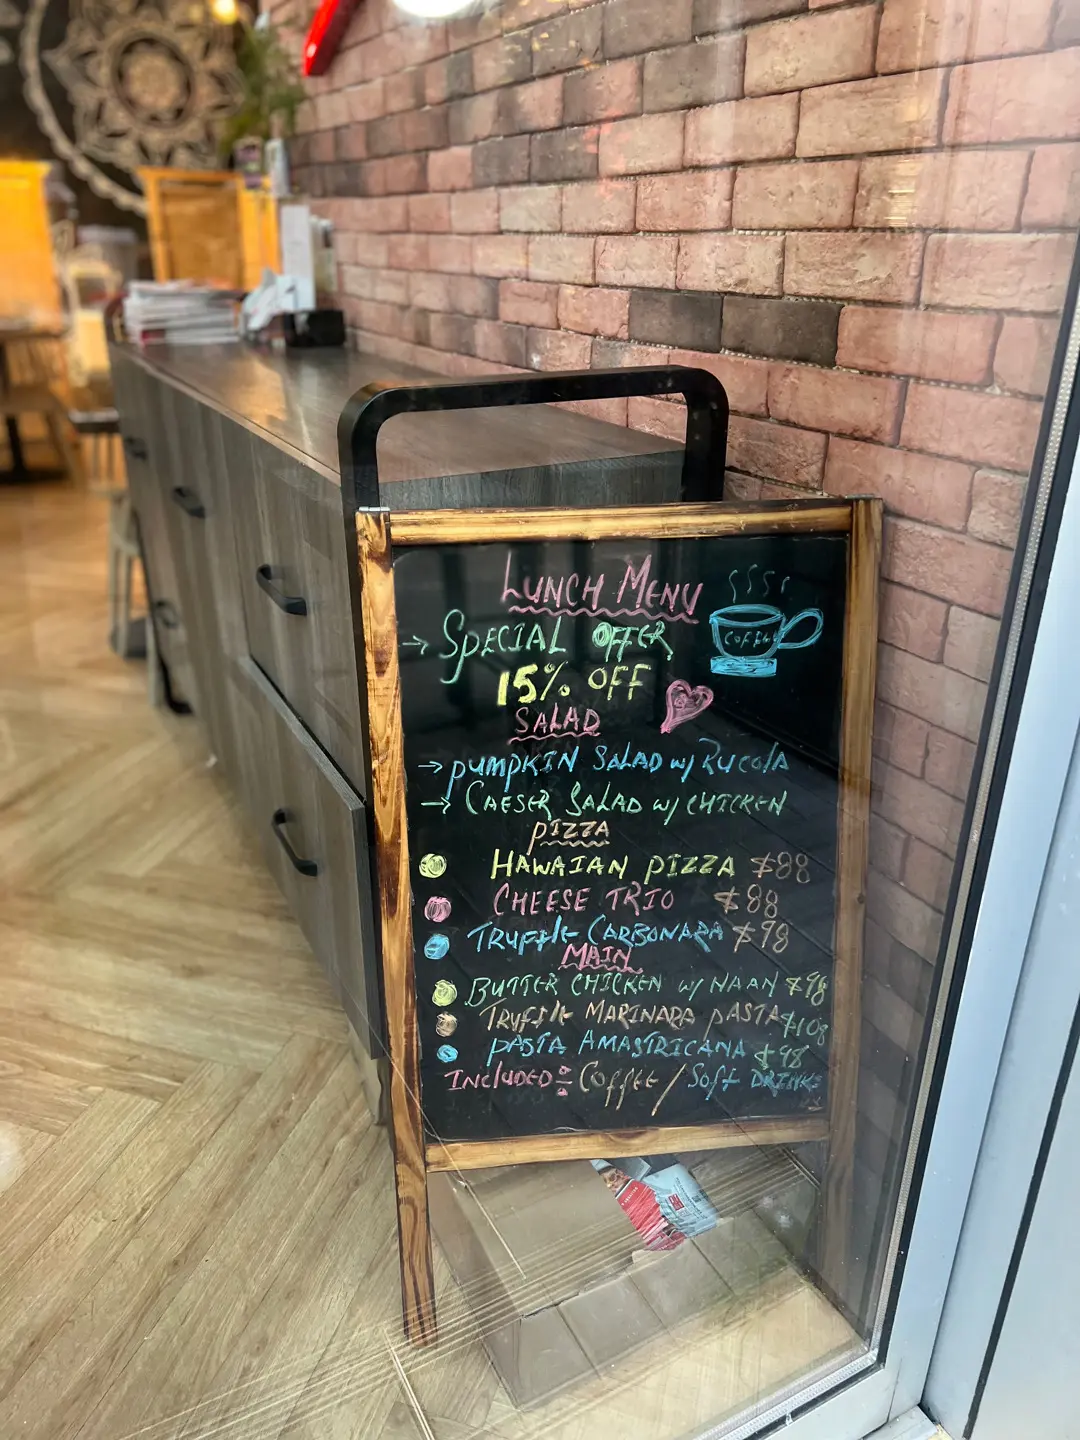 LUNCH MENU
→ SPECIAL OFFER
COFFEE
15% OFF
SALAD
→ PUMPKIN SALAD w/ RUCOLA
→ CAESER SALAD w/ CHICKEN
PIZZA
HAWAIAN PIZZA $88
CHEESE TRIO $88
TRUFFLE CARBONARA $98
MAIN
BUTTER CHICKEN w/ NAAN $98
TRUFFLE MARINARA PASTA $108
PASTA AMASTRICANA $98
INCLUDED: COFFEE / SOFT DRINKS